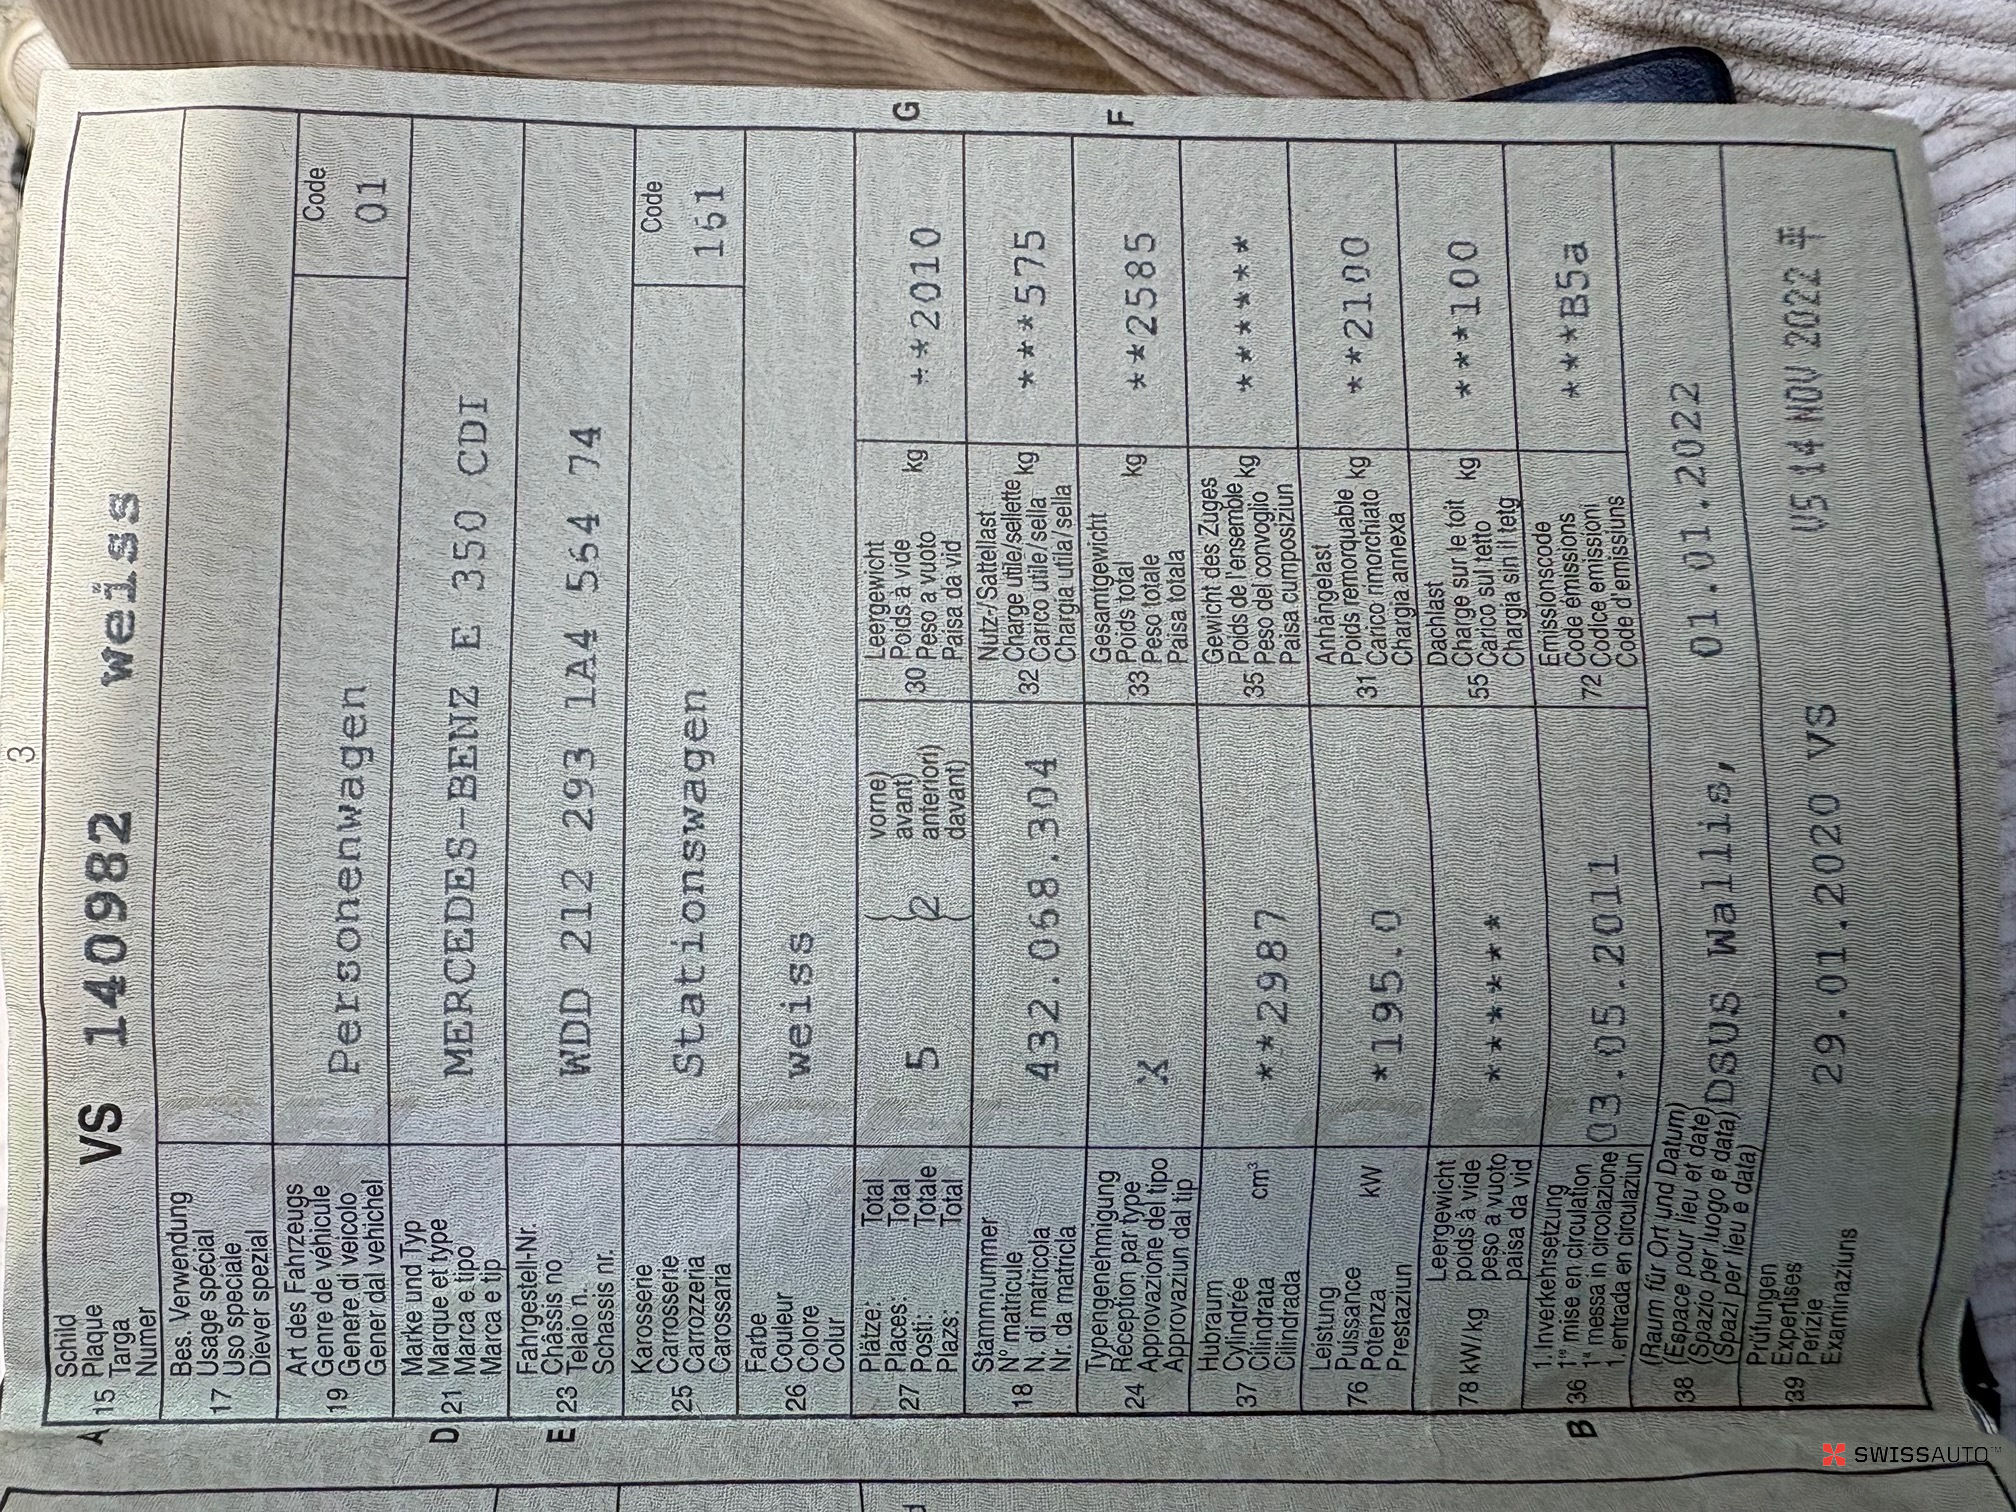 3
A 15 Schild
Plaque
Targa
Numer
VS 140982 weiss
17 Bes. Verwendung
Usage spécial
Uso speciale
Diever spezial
19 Art des Fahrzeugs
Genre de véhicule
Genere di veicolo
Gener dal vehichel
Personenwagen
Code
01
D 21 Marke und Typ
Marque et type
Marca e tipo
Marca e tip
MERCEDES-BENZ E 350 CDI
E 23 Fahrgestell-Nr.
Châssis no
Telaio n.
Schassis nr.
WDD 212 293 1A4 564 74
25 Karosserie
Carrosserie
Carrozzeria
Carossaria
Stationswagen
Code
161
26 Farbe
Couleur
Colore
Colur
weiss
27 Plätze: Total
Places: Total
Posti: Totale
Plazs: Total
5
2
vorne)
avant)
anteriori)
davant)
30 Leergewicht
Poids à vide
Peso a vuoto kg
Paisa da vid
**2010
G
18 Stammnummer
N° matricule
N. di matricola
Nr. da matricla
432.068.304
32 Nutz-/Sattellast
Charge utile/sellette kg
Carico utile/sella
Chargia utila/sella
***575
24 Typengenehmigung
Réception par type
Approvazione del tipo
Approvaziun dal tip
X
33 Gesamtgewicht
Poids total kg
Peso totale
Paisa totala
**2585
F
37 Hubraum
Cylindrée cm³
Cilindrata
Cilindrada
**2987
35 Gewicht des Zuges
Poids de l'ensemble kg
Peso del convoglio
Paisa cumposiziun
******
76 Leistung
Puissance kW
Potenza
Prestaziun
*195.0
31 Anhängelast
Poids remorquable kg
Carico rimorchiato
Chargia annexa
**2100
78 kW/kg Leergewicht
poids à vide
peso a vuoto
paisa da vid
******
55 Dachlast
Charge sur le toit kg
Carico sul tetto
Chargia sin il tetg
***100
B 36 1. Inverkehrsetzung
1re mise en circulation
1a messa in circolazione
1. entrada en circulaziun
03.05.2011
72 Emissionscode
Code émissions
Codice emissioni
Code d'emissiuns
***B5a
38 (Raum für Ort und Datum)
(Espace pour lieu et date)
(Spazio per luogo e data)
(Spazi per lieu e data)
DSUS Wallis, 01.01.2022
39 Prüfungen
Expertises
Perizie
Examinaziuns
29.01.2020 VS
VS 14 NOV 2022
SWISSAUTO™